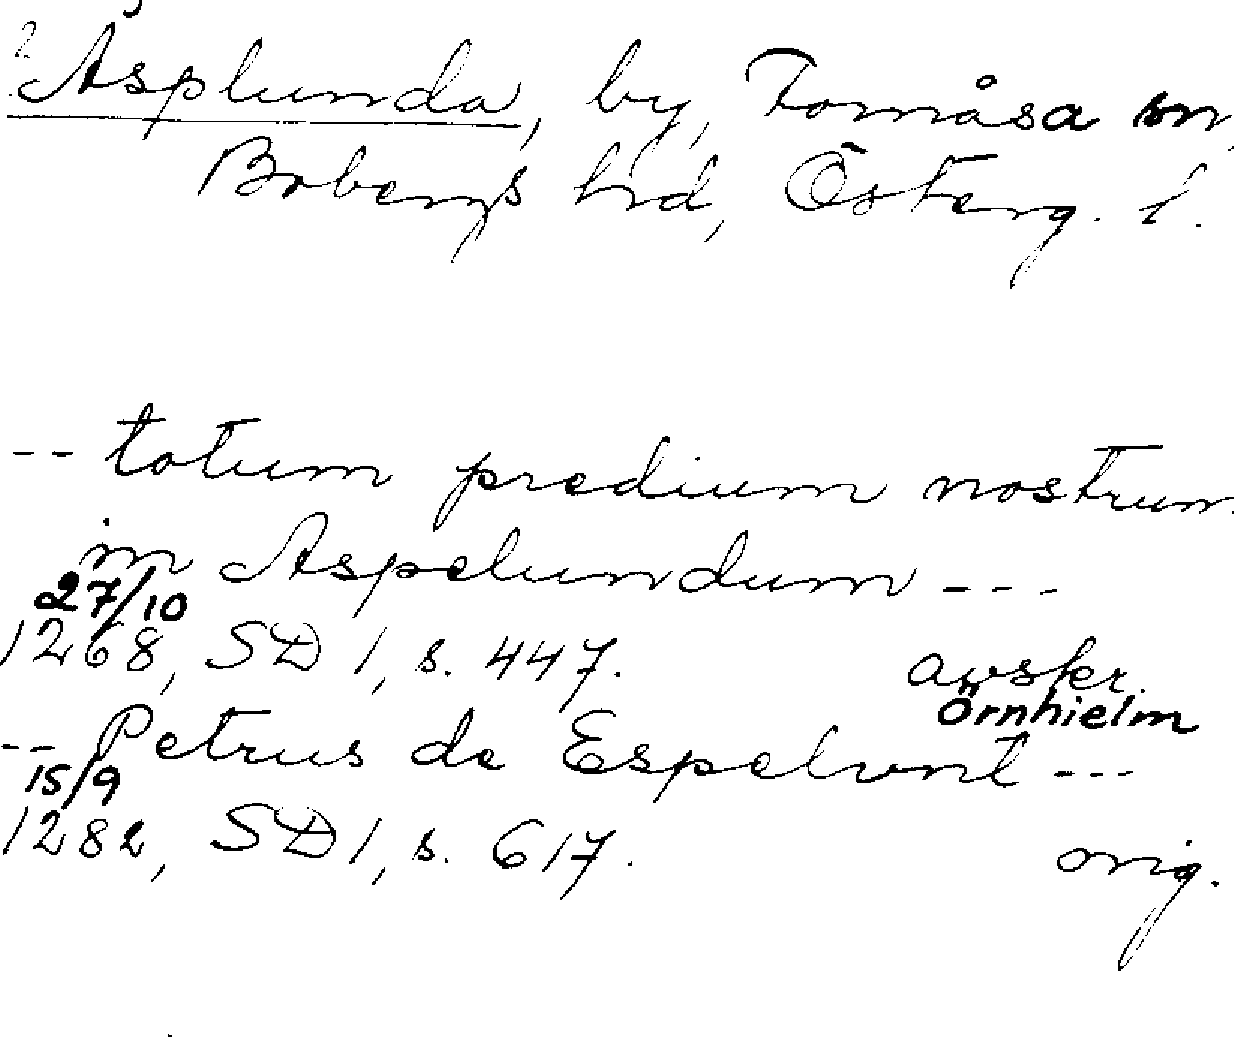 ? Asplunda, by, Fornåsa sn,
Bobergs hrd, Österg. l.
-- totum predium nostrum
in Aspelundum ---
27/10
1268, SD 1, s. 447. avskr.
Örnhielm
-- Petrus de Espelunt ---
15/9
1282, SD 1, s. 617. orig.